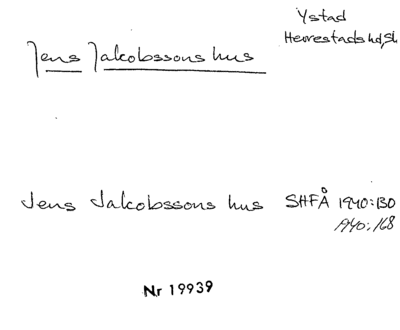 Ystad
Herrestads hd, Sk
Jens Jakobssons hus
Jens Jakobssons hus SHFÅ 1940:130
1940:168
Nr 19939